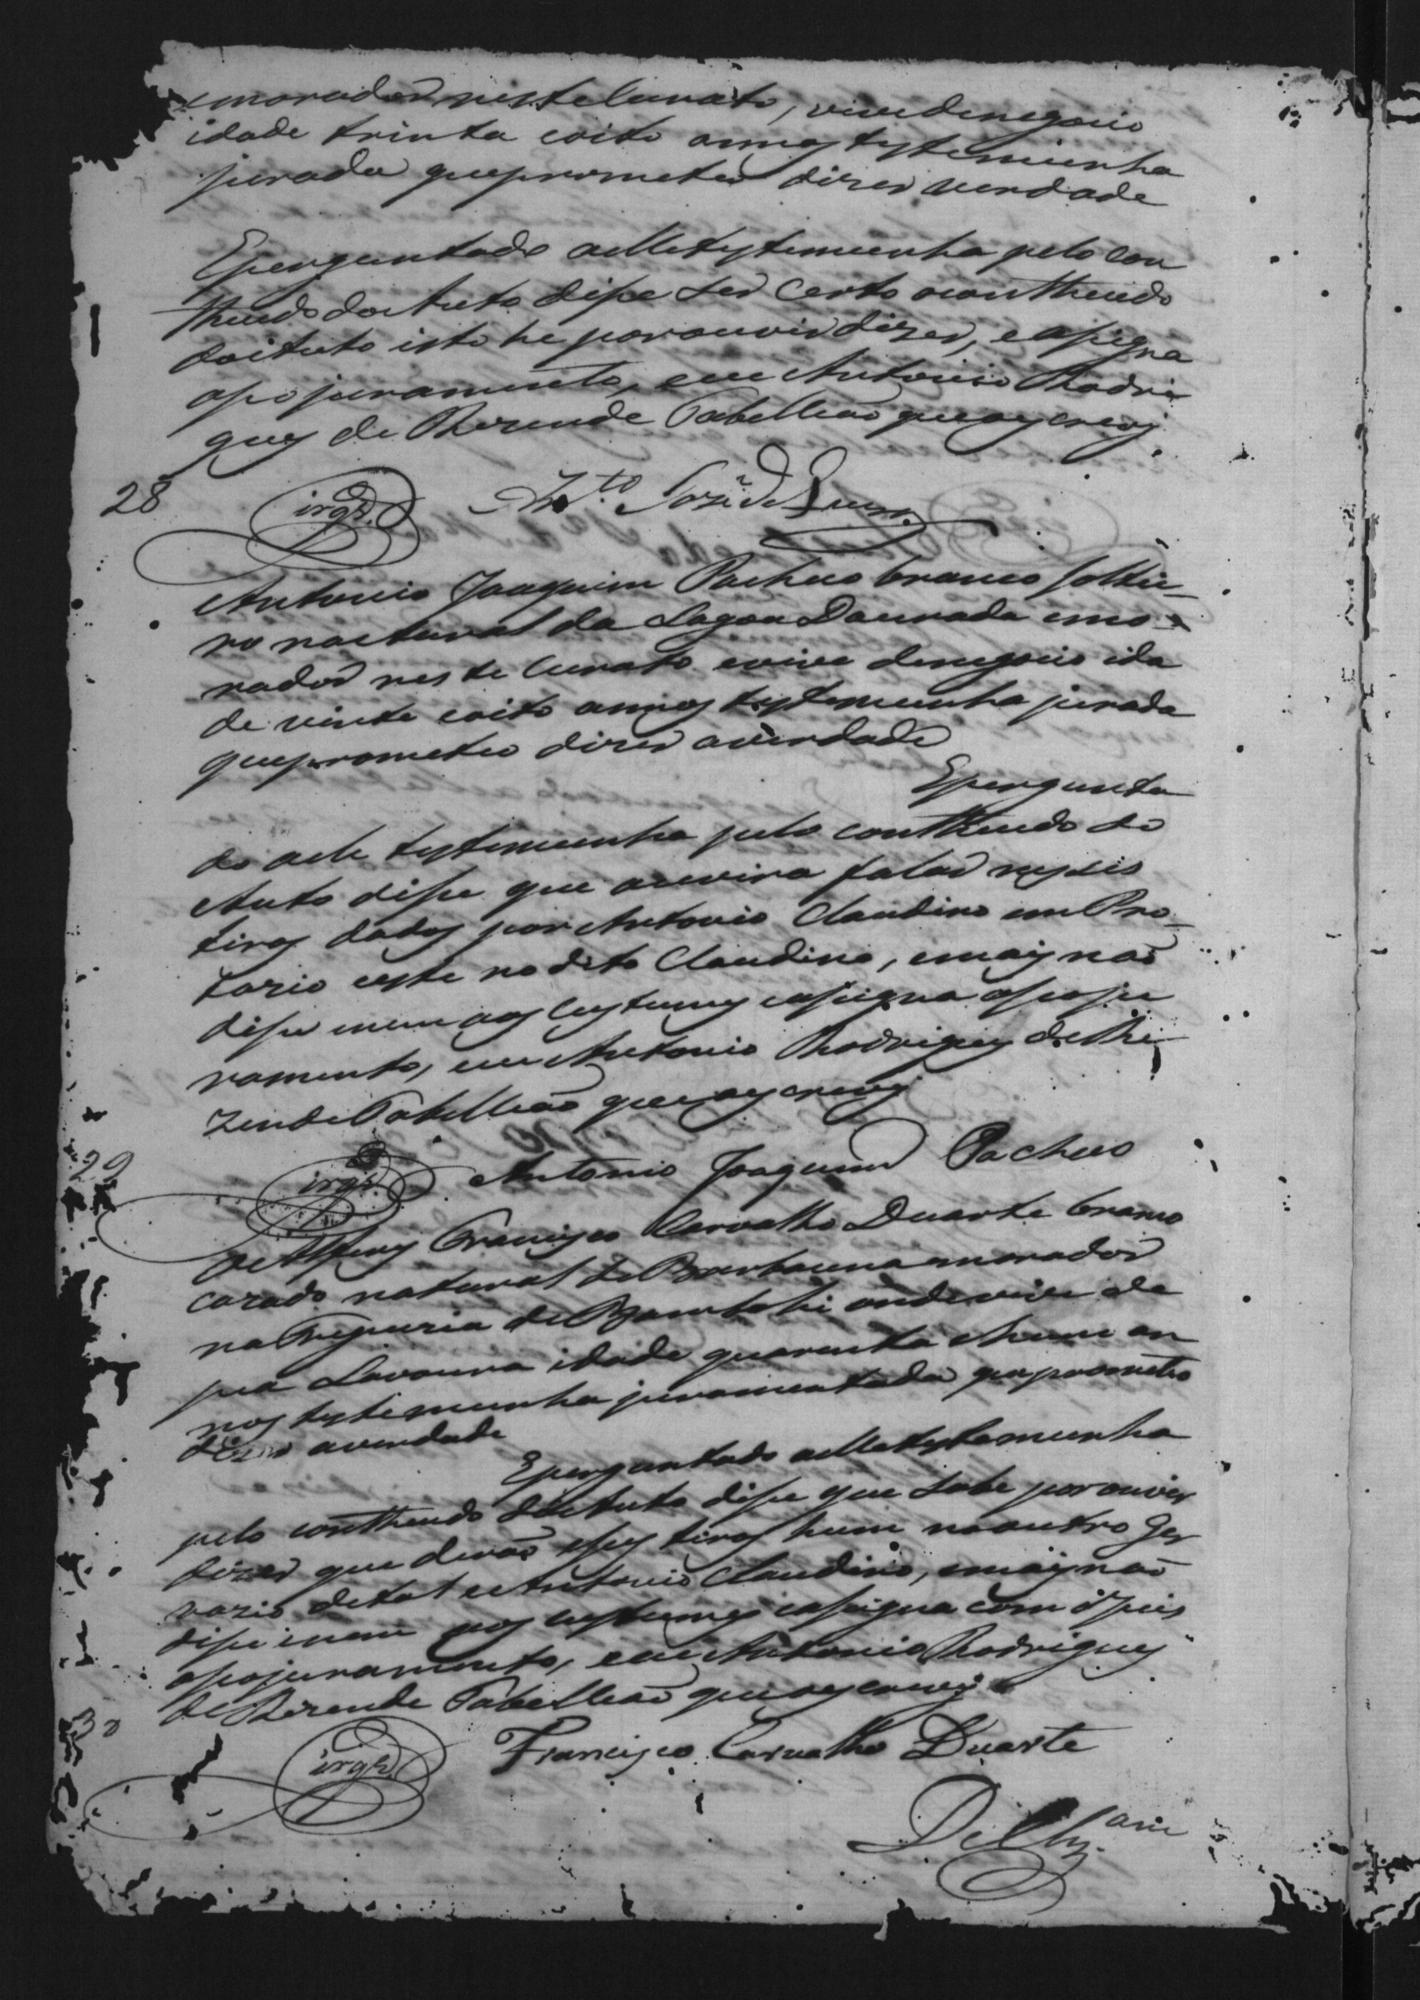 emorador neste Curato, vive de negocio
idade trinta e oito annos testemunha
jurada que prometeo dizer verdade
E perguntado a elle testemunha pelo con
theudo do Auto dise ser certo o contheudo
do auto isto he por ouvir dizer, e asigna
aseo juramento, e eu Antonio Rodri
gues de Rezende Tabelleão que o escrevy
28
Anto. Joze de
Antonio Joaquim Pacheco branco soltei_
ro natural da Lagoa Dourada emo
rador neste Curato evive de negocio ida
de vinte e oito annos testemunha jurada
que prometeo dizer averdade
E pergunta
do a ele testemunha pelo contheudo do
Auto dise que ouvira falar nesses
tiros dados por Antonio Claudino em Pro_
tazio e este no dito Claudino, emais não
dise nem aos custumes easigna aseo ju
ramento, e eu Antonio Rodrigues de Re
zende Tabelleão que o escrevy
29
Antonio Joaquim Pacheco
Alferes Francisco Carvalho Duarte branco
cazado natural de Barbacena emorador
na Freguezia de Bambohi onde vive de
sua Lavoura idade quarenta e hum an
nos testemunha juramentada que prometeo
dizer averdade
E perguntado a elle testemunha
pelo contheudo do Auto dise que sabe por ouvir
dizer que derão esses tiros hum no outro Ger
vazio de tal e Antonio Claudino, emais não
dise nem aos custumes easigna com o Juis
aseo juramento, e eu Antonio Rodrigues
de Rezende Tabelleão que o escrevy
30
Francisco Carvalho Duarte